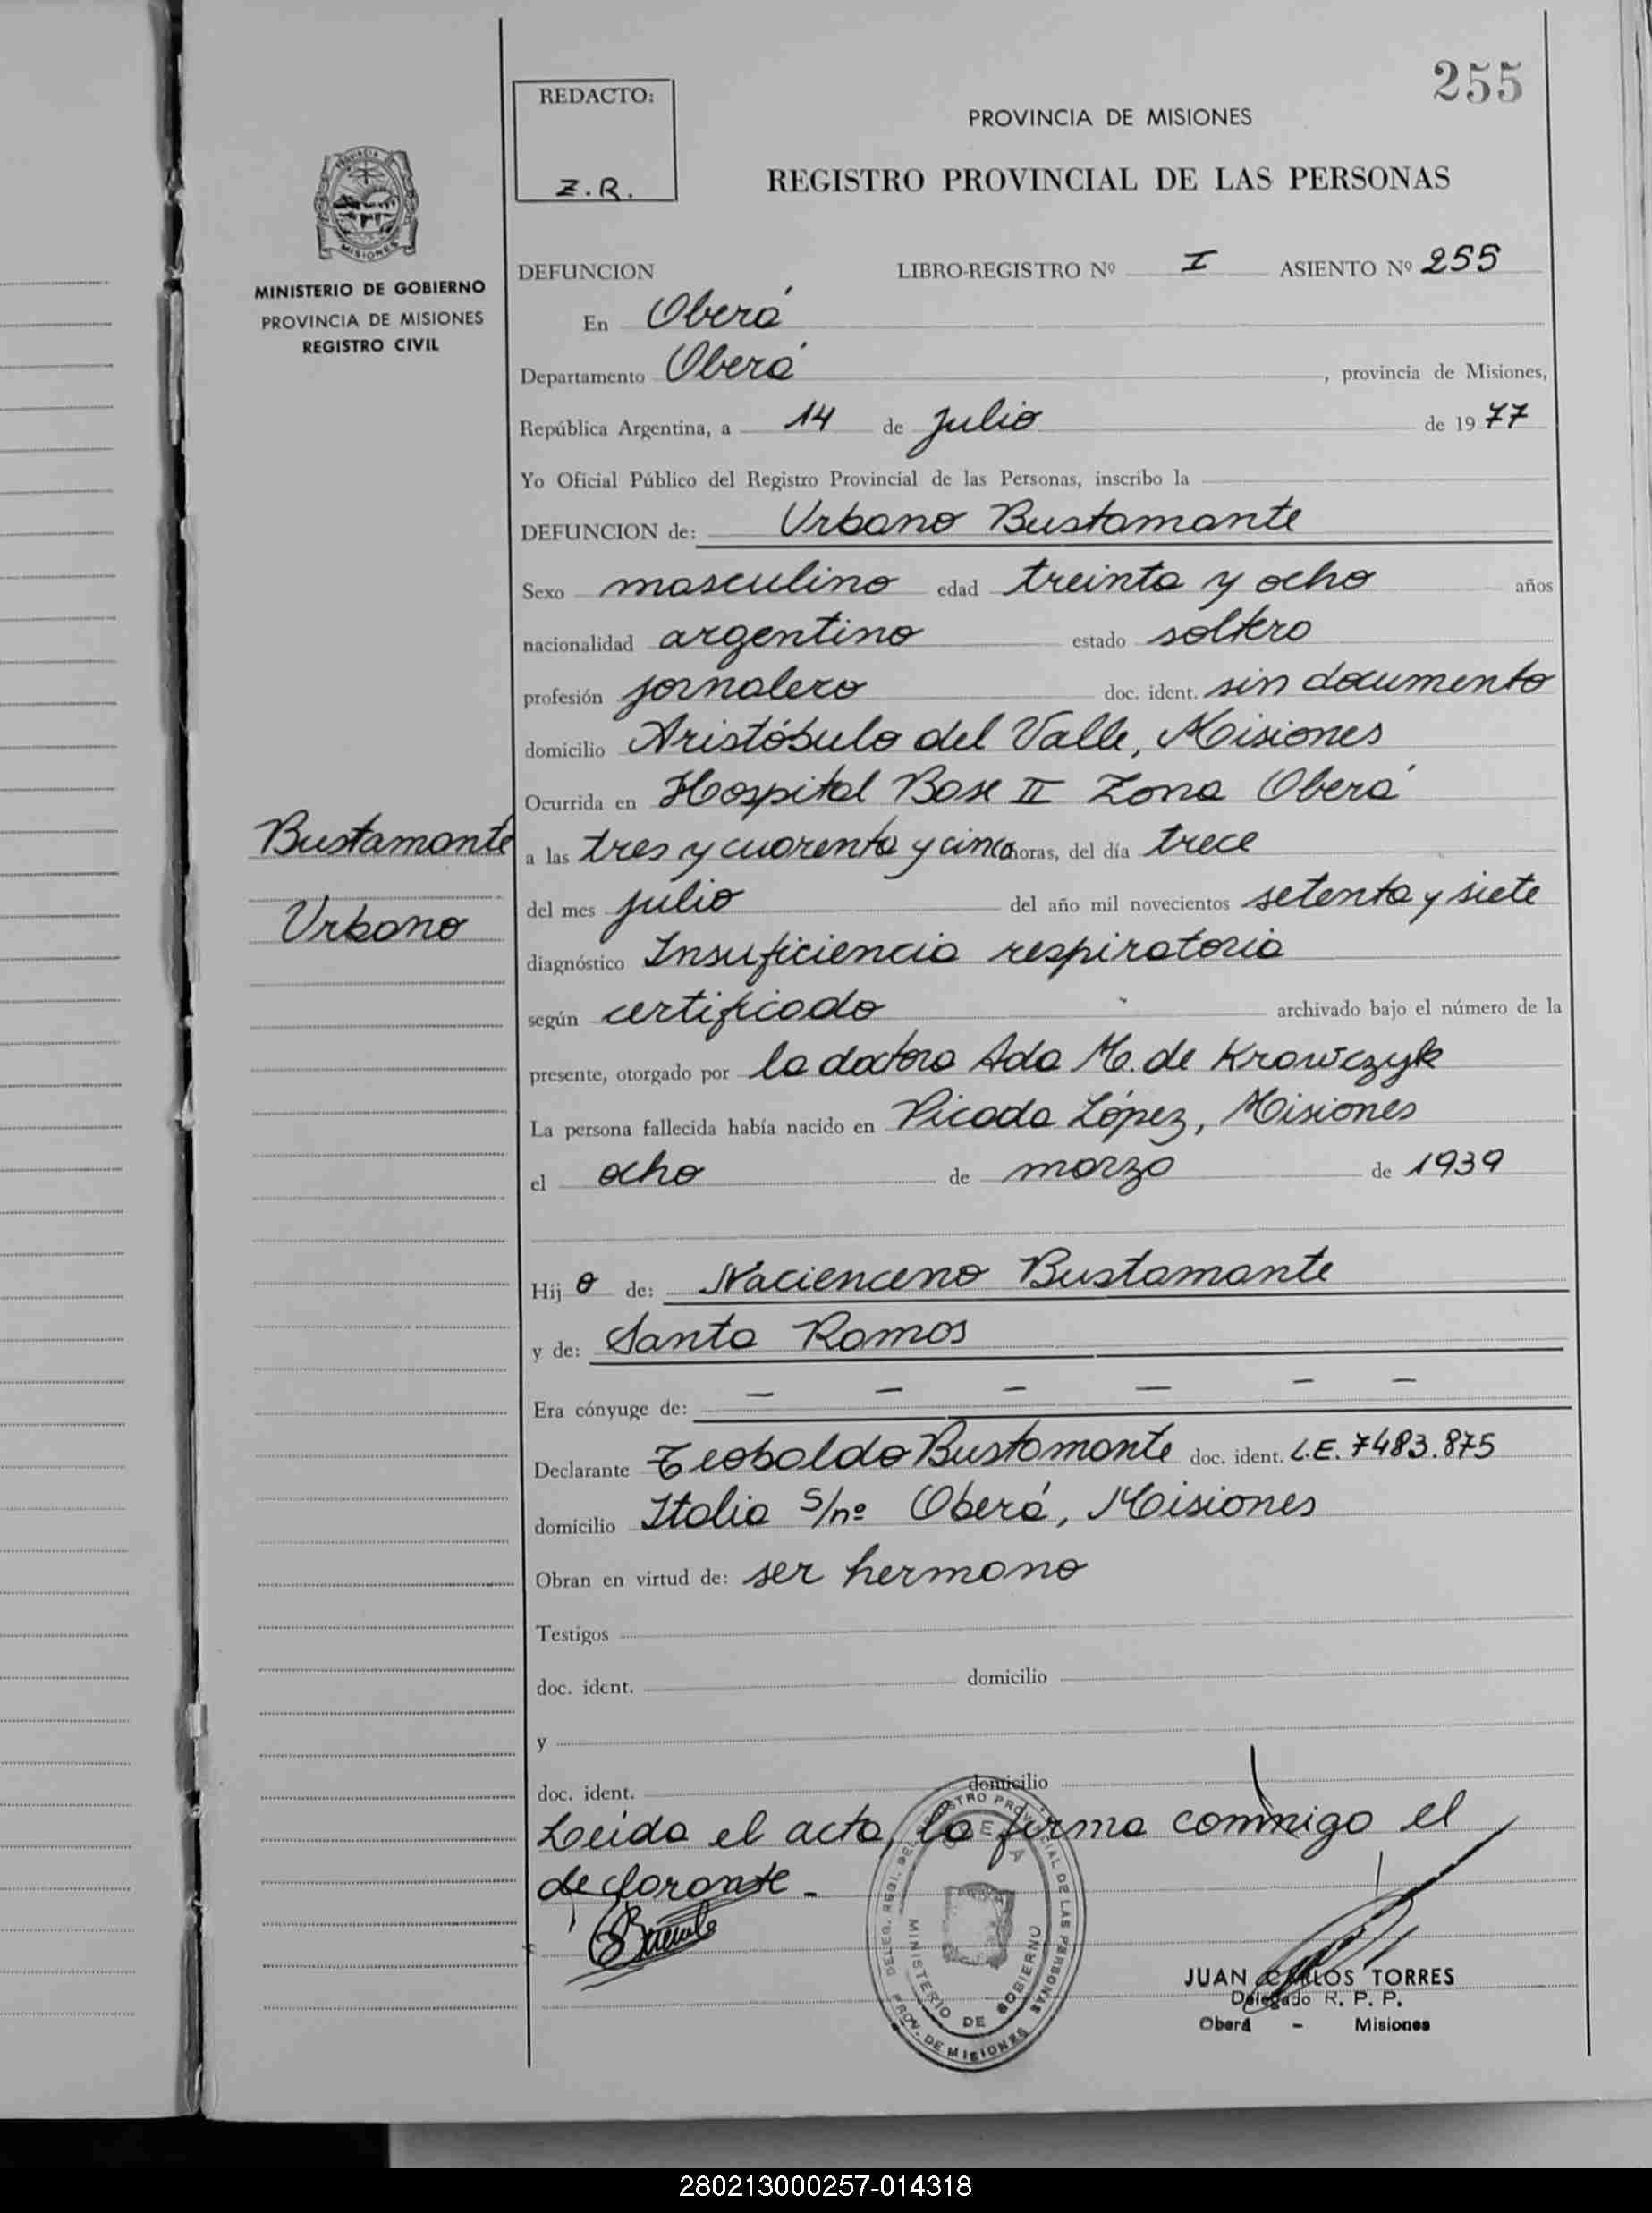 255
REDACTO:
Z.R.
PROVINCIA DE MISIONES
REGISTRO PROVINCIAL DE LAS PERSONAS
MISIONES
MINISTERIO DE GOBIERNO
PROVINCIA DE MISIONES
REGISTRO CIVIL
DEFUNCION LIBRO-REGISTRO Nº I ASIENTO Nº 255
En Oberá
Departamento Oberá, provincia de Misiones,
República Argentina, a 14 de julio de 1977
Yo Oficial Público del Registro Provincial de las Personas, inscribo la
DEFUNCION de: Urbano Bustamante
Sexo masculino edad treinta y ocho años
nacionalidad argentino estado soltero
profesión jornalero doc. ident. sin documento
domicilio Aristóbulo del Valle, Misiones
Ocurrida en Hospital Base II Zona Oberá
Bustamante
Urbano
a las tres y cuarenta y cinco horas, del día trece
del mes julio del año mil novecientos setenta y siete
diagnóstico Insuficiencia respiratoria
según certificado archivado bajo el número de la
presente, otorgado por la doctora Ada M. de Krawczyk
La persona fallecida había nacido en Picada López, Misiones
el ocho de marzo de 1939
Hij o de: Nacienceno Bustamante
y de: Santa Ramos
Era cónyuge de: — — — — — —
Declarante Teobaldo Bustamante doc. ident. L.E. 7483.875
domicilio Italia s/nº Oberá, Misiones
Obran en virtud de: ser hermano
Testigos
doc. ident. domicilio
y
doc. ident. domicilio
Leída el acta, la firma conmigo el
declarante.-
DELEG. REGI. DEL REGISTRO PROVINCIAL DE LAS PERSONAS
PROV. DE MISIONES
MINISTERIO DE GOBIERNO
JUAN CARLOS TORRES
Delegado R. P. P.
Oberá - Misiones
280213000257-014318